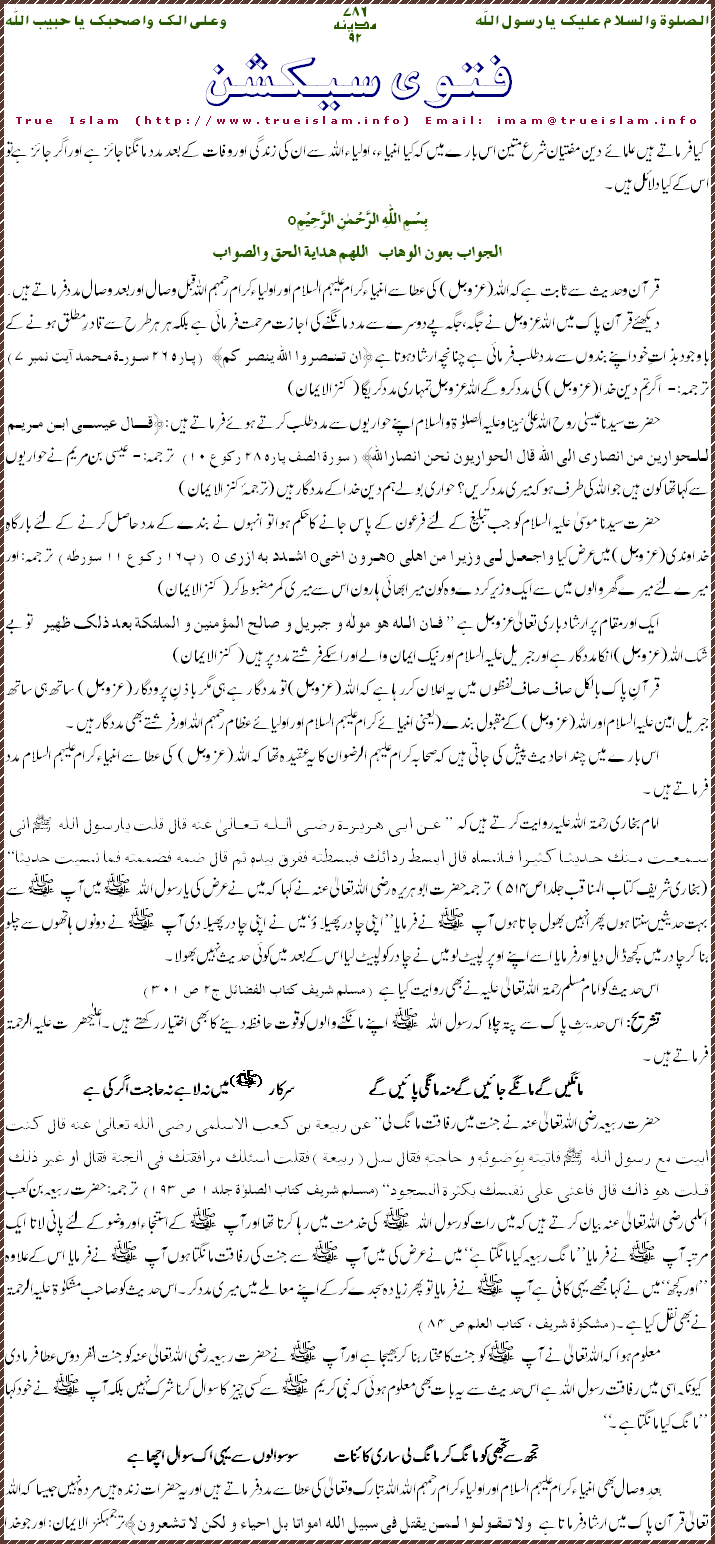 الصلوة والسلام علیک یا رسول اللہ ۷۸۶ وعلی الک واصحبک یا حبیب اللہ
مدینہ
۹۲
فتوی سیکشن
True Islam (http://www.trueislam.info) Email: imam@trueislam.info
کیا فرماتے ہیں علمائے دین مفتیان شرع متین اس بارے میں کہ کیا انبیاء، اولیاء اللہ سے ان کی زندگی اور وفات کے بعد مدد مانگنا جائز ہے اور اگر جائز ہے تو
اس کے کیا دلائل ہیں۔
بِسْمِ اللّٰهِ الرَّحْمٰنِ الرَّحِيْمِo
الجواب بعون الوهاب اللهم هداية الحق والصواب
قرآن وحدیث سے ثابت ہے کہ اللہ (عزوجل) کی عطا سے انبیاء کرام علیہم السلام اور اولیاء کرام رحمہم اللہ قبل وصال اور بعد وصال مدد فرماتے ہیں۔
دیکھئے قرآن پاک میں اللہ عزوجل نے جگہ، جگہ پے دوسرے سے مدد مانگنے کی اجازت مرحمت فرمائی ہے بلکہ ہر ہر طرح سے قادر مطلق ہونے کے
باوجود بذاتِ خود اپنے بندوں سے مدد طلب فرمائی ہے چنانچہ ارشاد ہوتا ہے ﴿ان تنصروا اللہ ینصر کم﴾ (پارہ ۲۶ سورۃ محمد آیت نمبر ۷)
ترجمہ:- اگر تم دین خدا (عزوجل) کی مدد کرو گے اللہ عزوجل تمہاری مدد کریگا (کنز الایمان)
حضرت سیدنا عیسیٰ روح اللہ علیٰ نبینا وعلیہ الصلوٰۃ والسلام اپنے حواریوں سے مدد طلب کرتے ہوئے فرماتے ہیں: ﴿قال عیسی ابن مریم
للحوارین من انصاری الی اللہ قال الحواریون نحن انصار اللہ﴾ (سورۃ الصف پارہ ۲۸ رکوع ۱۰) ترجمہ:- عیسیٰ بن مریم نے حواریوں
سے کہا تھا کون ہیں جو اللہ کی طرف ہو کہ میری مدد کریں؟ حواری بولے ہم دین خدا کے مددگار ہیں (ترجمۂ کنز الایمان)
حضرت سیدنا موسیٰ علیہ السلام کو جب تبلیغ کے لئے فرعون کے پاس جانے کا حکم ہوا تو انہوں نے بندے کے مدد حاصل کرنے کے لئے بارگاہِ
خداوندی (عزوجل) میں عرض کیا واجعل لی وزیرا من اهلی o هرون اخی o اشدد به ازری o (پ۱۶ رکوع ۱۱ سورطہ) ترجمہ: اور
میرے لئے میرے گھر والوں میں سے ایک وزیر کردے وہ کون میرا بھائی ہارون اس سے میری کمر مضبوط کر (کنز الایمان)
ایک اور مقام پر ارشاد باری تعالیٰ عزوجل ہے ” فان اللہ هو موله و جبریل و صالح المؤمنین و الملئکة بعد ذلک ظهیر تو بے
شک اللہ (عزوجل) انکا مددگار ہے اور جبریل علیہ السلام اور نیک ایمان والے اور اسکے فرشتے مدد پر ہیں (کنز الایمان)
قرآن پاک بالکل صاف صاف لفظوں میں یہ اعلان کر رہا ہے کہ اللہ (عزوجل) تو مددگار ہے ہی مگر باذنِ پرودگار (عزوجل) ساتھ ہی ساتھ
جبریل امین علیہ السلام اور اللہ (عزوجل) کے مقبول بندے (یعنی انبیائے کرام علیہم السلام اور اولیائے عظام رحمہم اللہ اور فرشتے بھی مددگار ہیں۔
اس بارے میں چند احادیث پیش کی جاتی ہیں کہ صحابہ کرام علیہم الرضوان کا یہ عقیدہ تھا کہ اللہ (عزوجل) کی عطا سے انبیاء کرام علیہم السلام مدد
فرماتے ہیں۔
امام بخاری رحمۃ اللہ علیہ روایت کرتے ہیں کہ ”عن ابی هریرة رضی اللہ تعالیٰ عنه قال قلت یارسول اللہ ﷺ انی
سمعت منک حدیثا کثیرا فانساه قال ابسط ردائک فبسطته فغرق بیده ثم قال ضمه فضممته فما نسیت حدیثا“
(بخاری شریف کتاب المناقب جلد ا ص ۵۱۴) ترجمہ حضرت ابو ہریرہ رضی اللہ تعالیٰ عنہ نے کہا کہ میں نے عرض کی یا رسول اللہ ﷺ میں آپ ﷺ سے
بہت حدیثیں سنتا ہوں پھر انہیں بھول جاتا ہوں آپ ﷺ نے فرمایا ”اپنی چادر پھیلاؤ“ میں نے اپنی چادر پھیلا دی آپ ﷺ نے دونوں ہاتھوں سے چلو
بنا کر چادر میں کچھ ڈال دیا اور فرمایا اسے اپنے اوپر لپیٹ لو میں نے چادر کو لپیٹ لیا اس کے بعد میں کوئی حدیث نہیں بھولا۔
اس حدیث کو امام مسلم رحمۃ اللہ تعالیٰ علیہ نے بھی روایت کیا ہے (مسلم شریف کتاب الفضائل ج۲ ص ۳۰۱)
تشریح: اس حدیث پاک سے پتہ چلا کہ رسول اللہ ﷺ اپنے مانگنے والوں کو قوت حافظہ دینے کا بھی اختیار رکھتے ہیں۔ اعلیٰحضرت علیہ الرحمۃ
فرماتے ہیں۔
مانگیں گے مانگے جائیں گے منہ مانگی پائیں گے سرکار (ﷺ) میں نہ لا ہے نہ حاجت اگر کی ہے
حضرت ربیعہ رضی اللہ تعالیٰ عنہ نے جنت میں رفاقت مانگ لی ”عن ربیعة بن کعب الاسلمی رضی اللہ تعالیٰ عنه قال کنت
ابیت مع رسول اللہ ﷺ فاتیته بوَضوئه و حاجته فقال سل (ربیعة) فقلت اسئلک مرافقتک فی الجنة فقال او غیر ذلک
قلت هو ذاك قال فاعنی علی نفسك بکثرة السجود“ (مسلم شریف کتاب الصلوٰۃ جلد ۱ ص ۱۹۳) ترجمہ: حضرت ربیعہ بن کعب
اسلمی رضی اللہ تعالیٰ عنہ بیان کرتے ہیں کہ میں رات کو رسول اللہ ﷺ کی خدمت میں رہا کرتا تھا اور آپ ﷺ کے استنجاء اور وضو کے لئے پانی لاتا ایک
مرتبہ آپ ﷺ نے فرمایا ”مانگ ربیعہ کیا مانگتا ہے“ میں نے عرض کی میں آپ ﷺ سے جنت کی رفاقت مانگتا ہوں آپ ﷺ نے فرمایا اس کے علاوہ
”اور کچھ“ میں نے کہا مجھے یہی کافی ہے آپ ﷺ نے فرمایا تو پھر زیادہ سجدے کر کے اپنے معاملے میں میری مدد کر۔ اس حدیث کو صاحب مشکوٰۃ علیہ الرحمۃ
نے بھی نقل کیا ہے۔ (مشکوٰۃ شریف، کتاب العلم ص ۸۴)
معلوم ہوا کہ اللہ تعالیٰ نے آپ ﷺ کو جنت کا مختار بنا کر بھیجا ہے اور آپ ﷺ نے حضرت ربیعہ رضی اللہ تعالیٰ عنہ کو جنت الفردوس عطا فرمادی
کیونکہ اسی میں رفاقت رسول اللہ ہے اس حدیث سے یہ بات بھی معلوم ہوئی کہ نبی کریم ﷺ سے کسی چیز کا سوال کرنا شرک نہیں بلکہ آپ ﷺ نے خود کہا
”مانگ کیا مانگتا ہے۔“
تجھ سے تجھی کو مانگ کر مانگ لی ساری کائنات سو سوالوں سے یہی اک سوال اچھا ہے
بعد وصال بھی انبیاء کرام علیہم السلام اور اولیاء کرام رحمہم اللہ اللہ تبارک وتعالیٰ کی عطا سے مدد فرماتے ہیں اور یہ حضرات زندہ ہیں مردہ نہیں جیسا کہ اللہ
تعالیٰ قرآن پاک میں ارشاد فرماتا ہے ولا تقولوا لمن یقتل فی سبیل اللہ امواتا بل احیاء و لکن لا تشعرون﴾ ترجمہ کنز الایمان: اور جو خدا